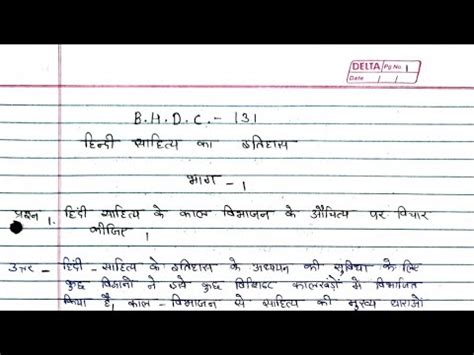 DELTA Pg No. 1
Date / /
B.H.D.C. - 131
हिन्दी साहित्य का इतिहास
भाग - 1
प्रश्न 1. हिंदी साहित्य के काल विभाजन के औचित्य पर विचार
कीजिए ।
उत्तर - हिंदी - साहित्य के इतिहास के अध्ययन की सुविधा के लिए
कुछ विद्वानों ने उसे कुछ विशिष्ट कालखंडों में विभाजित
किया है, काल - विभाजन से साहित्य की मुख्य धाराओं